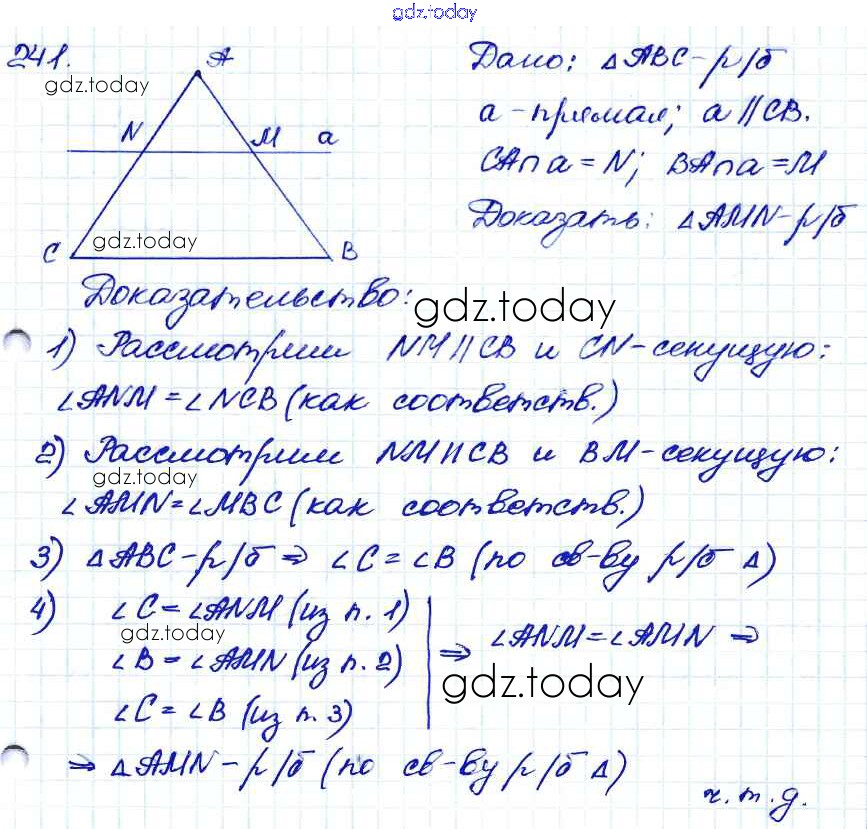 gdz.today
241.
gdz.today
A
N
M
a
C
gdz.today
B
Дано: △ABC-р/б
a-прямая; a || CB.
CA∩a=N; BA∩a=M
Доказать: △AMN-р/б
Доказательство:
gdz.today
1) Рассмотрим NM||CB и CN-секущую:
∠ANM=∠NCB (как соответств.)
2) Рассмотрим NM||CB и BM-секущую:
gdz.today
∠AMN=∠MBC (как соответств.)
3) △ABC-р/б ⇒ ∠C=∠B (по св-ву р/б △)
4) ∠C=∠ANM (из п. 1)
gdz.today
∠B=∠AMN (из п. 2)
∠C=∠B (из п. 3)
⇒ ∠ANM=∠AMN ⇒
gdz.today
⇒ △AMN-р/б (по св-ву р/б △)
ч.т.д.